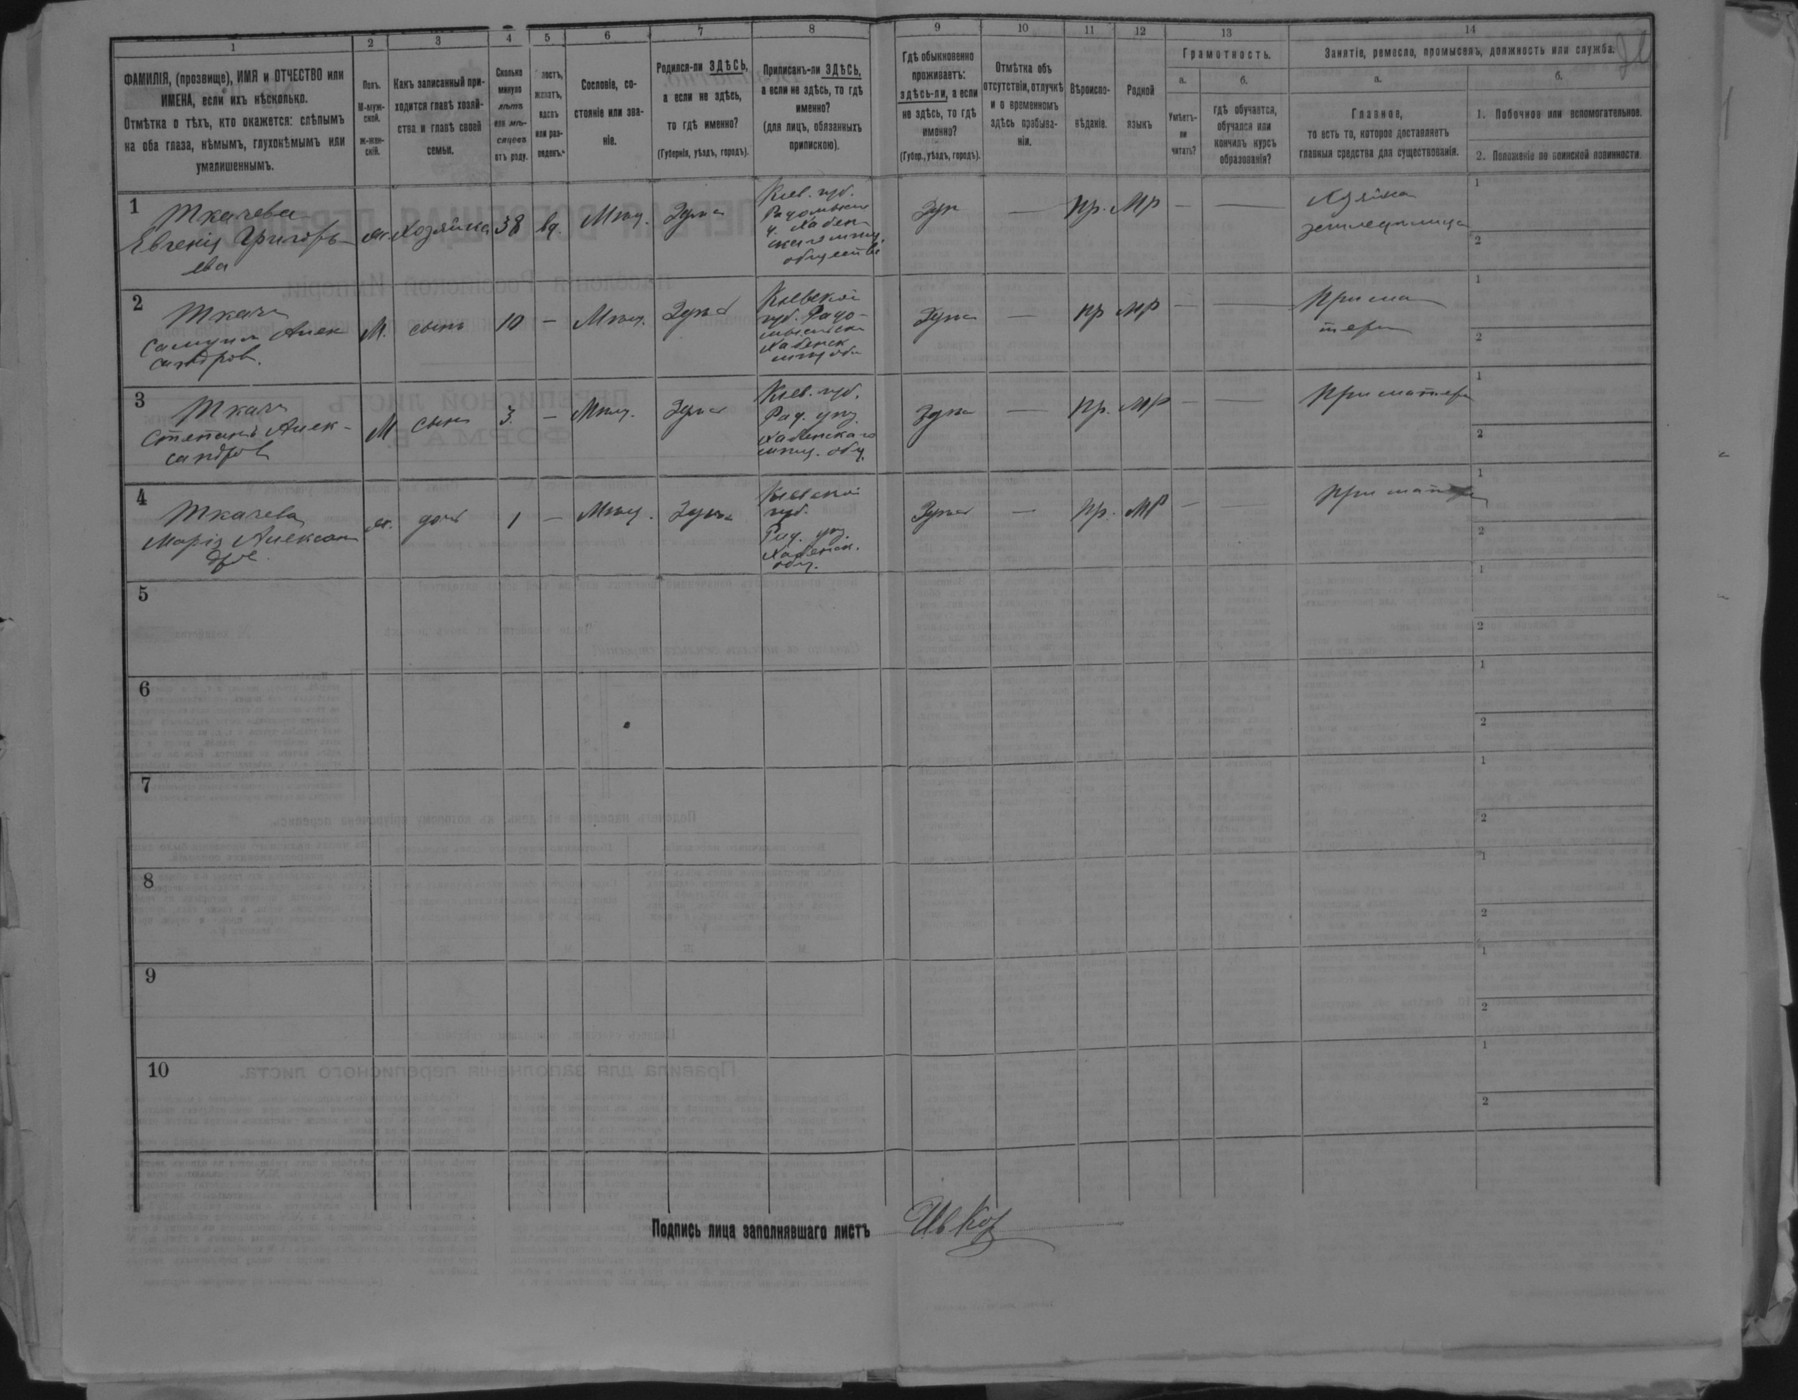 1 2 3 4 5 6 7 8 9 10 11 12 13 14
ФАМИЛІЯ, (прозвище), ИМЯ и ОТЧЕСТВО или
ИМЕНА, если ихъ нѣсколько.
Отмѣтка о тѣхъ, кто окажется: слѣпымъ
на оба глаза, нѣмымъ, глухонѣмымъ или
умалишеннымъ.
Полъ.
М-муж-
ской.
Ж-жен-
скій.
Какъ записанный при-
ходится главѣ хозяй-
ства и главѣ своей
семьи.
Сколько
минуло
лѣтъ
или мѣ-
сяцевъ
отъ роду.
женатъ,
вдовъ
или раз-
веденъ.
Сословіе, со-
стояніе или зва-
ніе.
Родился-ли ЗДѢСЬ,
а если не здѣсь,
то гдѣ именно?
(Губернія, уѣздъ, городъ).
Приписанъ-ли ЗДѢСЬ,
а если не здѣсь, то гдѣ
именно?
(для лицъ, обязанныхъ
припискою).
Гдѣ обыкновенно
проживаетъ:
здѣсь-ли, а если
не здѣсь, то гдѣ
именно?
(Губер., уѣздъ, городъ).
Отмѣтка объ
отсутствіи, отлучкѣ
и о временномъ
здѣсь пребыва-
ніи.
Вѣроиспо-
вѣданіе.
Родной
языкъ
Грамотность.
а. б.
Умѣетъ-
ли
читать?
гдѣ обучается,
обучался или
кончилъ курсъ
образованія?
Занятіе, ремесло, промыселъ, должность или служба.
а. б.
Главное,
то есть то, которое доставляетъ
главныя средства для существованія.
1. Побочное или вспомогательное.
2. Положеніе по воинской повинности.
1
Ткачева
Евгенія Григорь-
ева
ж. Хозяйка 38 вд. Мѣщ. Здѣсь
Кіев. губ.
Радомысл
у. Хабен
скаго мѣщ.
обществѣ
Здѣ — Пр. МР — — Хозяйка
земледѣлица
1
2
2
Ткачъ
Самуилъ Алек
сандров.
М. сынъ 10 — Мѣщ. Здѣсь
Кіевской
губ. Радо-
мысльск
Хабенск
мѣщ общ
Здѣсь — Пр МР — — При ма
тери
1
2
3
Ткачъ
Степанъ Алек-
сандров
М сынъ 3 — Мѣщ. Здѣсь
Кіев. губ.
Рад. уѣз.
Хабенскаго
мѣщ. общ.
Здѣсь — Пр. МР — — При матери
1
2
4
Ткачева
Марія Алексан
дров
ж. дочь 1 — Мѣщ. Здѣсь
Кіевской
губ.
Рад. уѣз.
Хабенск.
общ.
Здѣсь — Пр. МР — — При матери
1
2
5
1
2
6
1
2
7
1
2
8
1
2
9
1
2
10
1
2
Подпись лица заполнявшаго листъ